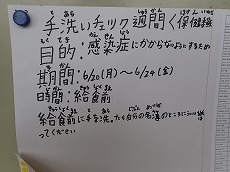 手洗いチェック週間〈保健委員
目的:感染症にかからないようにするため
期間:6/20(月)～6/24(金)
時間:給食前
給食前に手を洗ったら自分の名簿のところにシールを
ってください